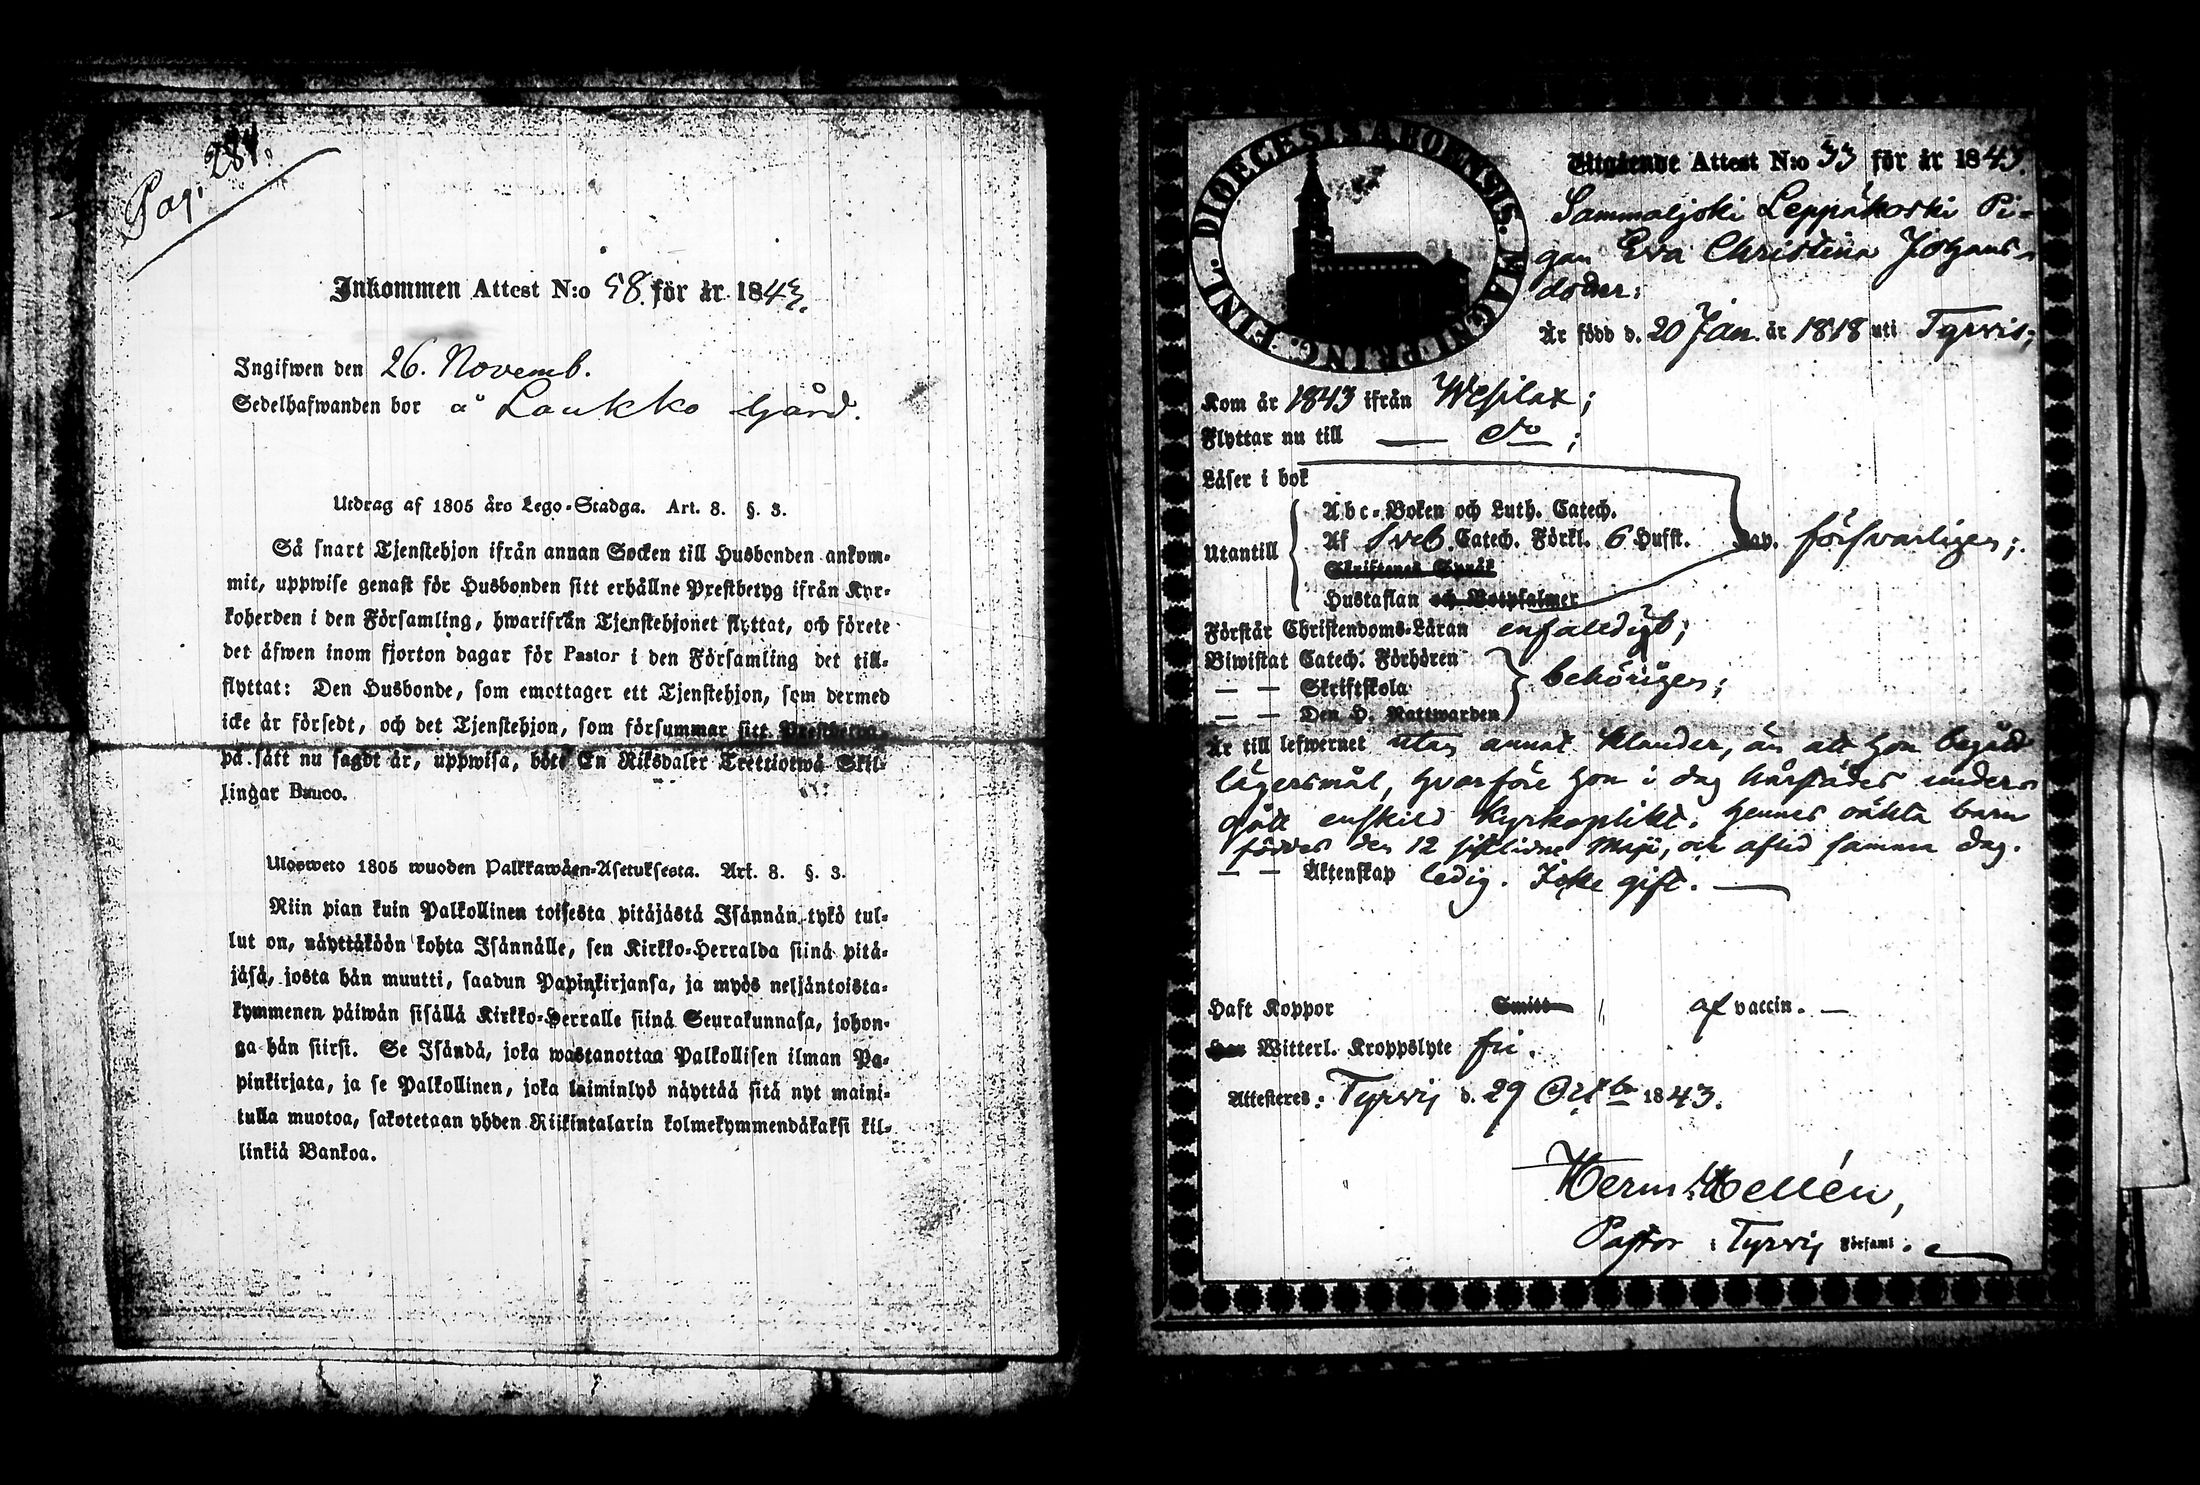 Pag. 284.
Inkommen Attest N:o 58. för år 1843.
Ingifwen den 26. Novemb.
Sedelhafwanden bor å Laukko Gård.
Utdrag af 1805 års Lego-Stadga. Art. 8. §. 3.
Så snart Tjenstehjon ifrån annan Socken till Husbonden ankom-
mit, uppwise genast för Husbonden sitt erhållne Prestbetyg ifrån Kyr-
koherden i den Församling, hwarifrån Tjenstehjonet flyttat, och förete
det äfwen inom fjorton dagar för Pastor i den Församling det till-
flyttat: Den Husbonde, som emottager ett Tjenstehjon, som dermed
icke är försedt, och det Tjenstehjon, som försummar sitt Prestbetyg,
på sätt nu sagdt är, uppwisa, böte En Riksdaler Trettiotwå Skil-
lingar Banco.
Ulosweto 1805 wuoden Palkkawäen-Asetuksesta. Art. 8. §. 3.
Niin pian kuin Palkollinen toisesta pitäjästä Isännän tykö tul-
lut on, näyttäköön kohta Isännälle, sen Kirkko-Herralda siinä pitä-
jäsä, josta hän muutti, saadun Papinkirjansa, ja myös neljäntoista-
kymmenen päiwän sisällä Kirkko-Herralle siinä Seurakunnasa, johon-
ga hän siirsi. Se Isändä, joka wastanottaa Palkollisen ilman Pa-
pinkirjata, ja se Palkollinen, joka laiminlyö näyttää sitä nyt maini-
tulla muotoa, sakotetaan yhden Riikintalarin kolmekymmendäkaksi kil-
linkiä Bankoa.
DIOECESIS ABOENSIS. MAGNI PRINC. FINL.
Utgående Attest N:o 33 för år 1843.
Sammaljoki Leppäkoski Pi-
gan Eva Christina Johans-
doter:
Är född d. 20 Jan. år 1818 uti Tyrvis;
Kom år 1843 ifrån Wesilax;
Flyttar nu till — do;
Läser i bok
Utantill
Abc-Boken och Luth. Catech.
Af Sveb. Catech. Förkl. 6 Hufst. Cap. försvarligen;
Skriftenes Språk
Hustaflan och Botpsalmer
Förstår Christendoms-Läran enfaldigt;
Biwistat Catech. Förhören
— — Skriftskola behörigen;
— — Den H. Nattwarden
Är till lefwernet utan annat klander, än att hon begått
lägersmål, hvarföre hon i dag härstädes under-
gått enskild Kyrkoplikt. Hennes oäkta barn
föddes den 12 sistlidne Maji, och afled samma dag.
— — Äktenskap ledig. Icke gift. —
Haft Koppor Smitt af vaccin. —
Har Witterl. Kroppslyte fri.
Attesteres: Tyrvis d. 29 Octbr 1843.
Herm. Hellén,
Pastor i Tyrvis Församl.